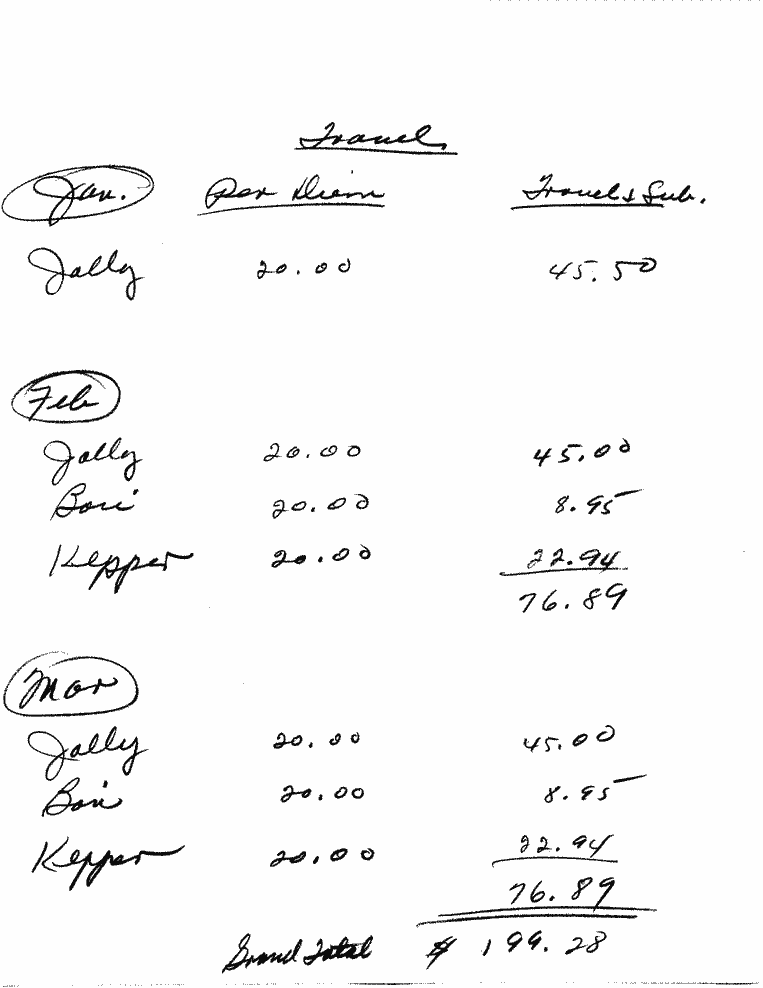 Travel
Jan. Per Diem Travel & Sub.
Jolly 20.00 45.50
Feb
Jolly 20.00 45.00
Bori 20.00 8.95
Kepper 20.00 22.94
76.89
Mar
Jolly 20.00 45.00
Bori 20.00 8.95
Kepper 20.00 22.94
76.89
Grand Total $ 199.28